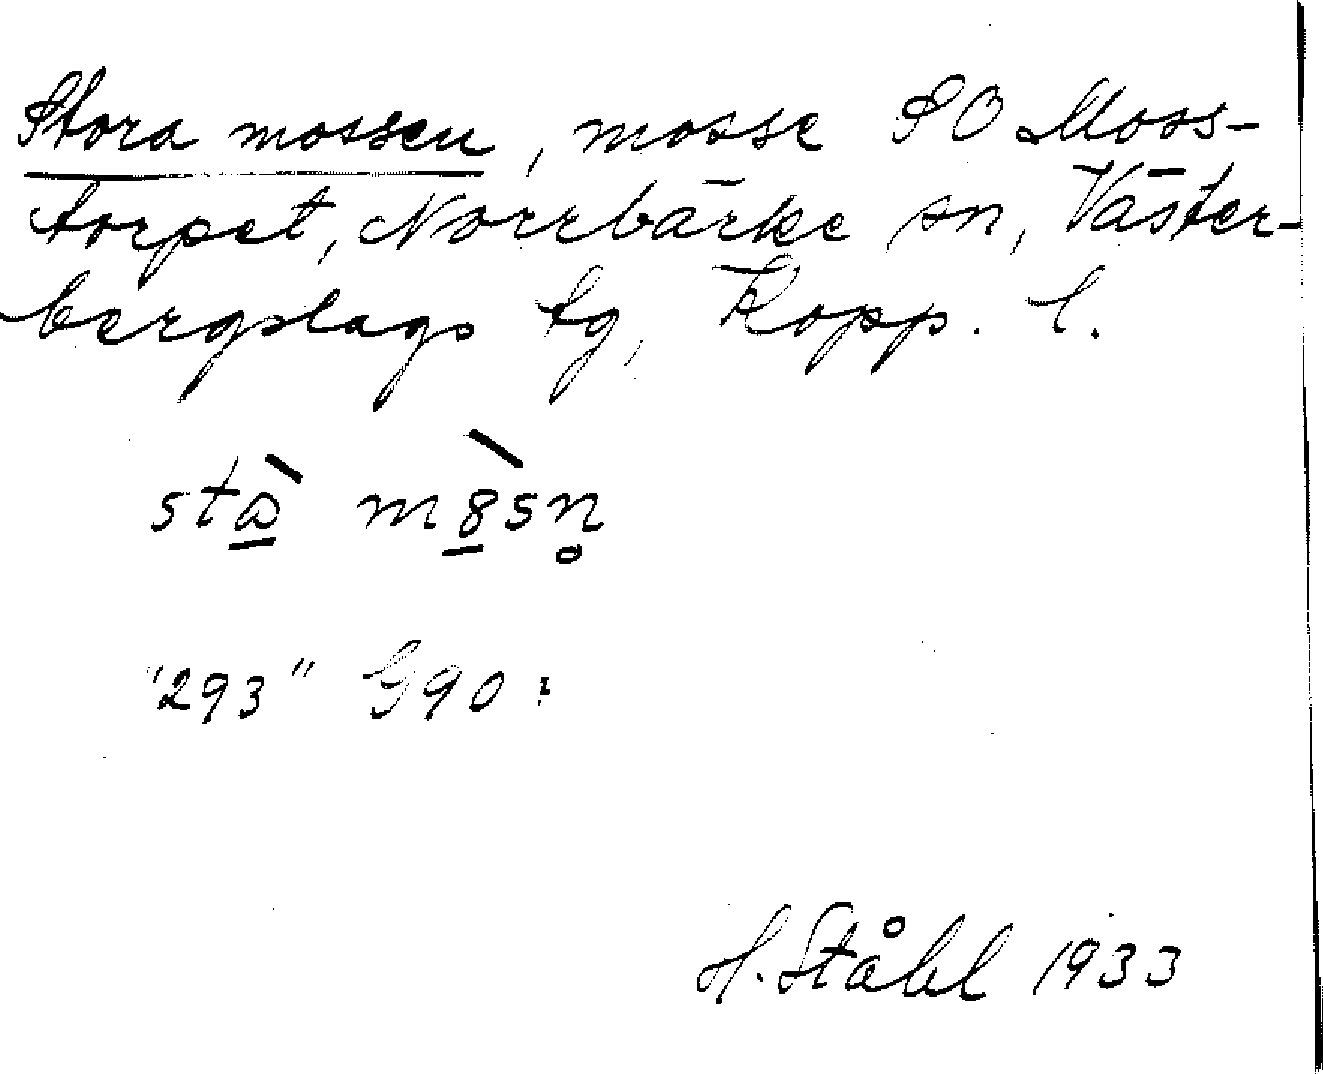 Stora mossen, mosse SO Moos-
torpet, Norrbärke sn, Väster-
bergslags tg, Kopp. l.
"293" G90:
H. Ståhl 1933